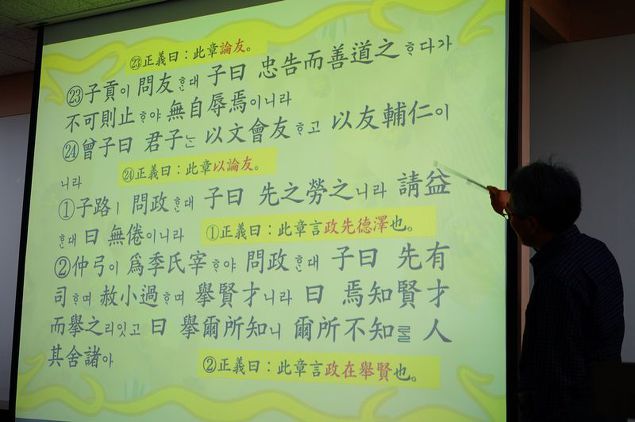 ㉓正義曰：此章論友。
㉓子貢이 問友ᄒᆞᆫ대 子曰 忠告而善道之호다가
不可則止ᄒᆞ야 無自辱焉이니라
㉔曾子曰 君子는 以文會友ᄒᆞ고 以友輔仁이
니라
㉔正義曰：此章以論友。
①子路ㅣ 問政ᄒᆞᆫ대 子曰 先之勞之니라 請益
ᄒᆞᆫ대 曰 無倦이니라
①正義曰：此章言政先德澤也。
②仲弓이 爲季氏宰ᄒᆞ야 問政ᄒᆞᆫ대 子曰 先有
司ᄒᆞ며 赦小過ᄒᆞ며 擧賢才니라 曰 焉知賢才
而擧之리잇고 曰 擧爾所知니 爾所不知 人
其舍諸아
②正義曰：此章言政在擧賢也。